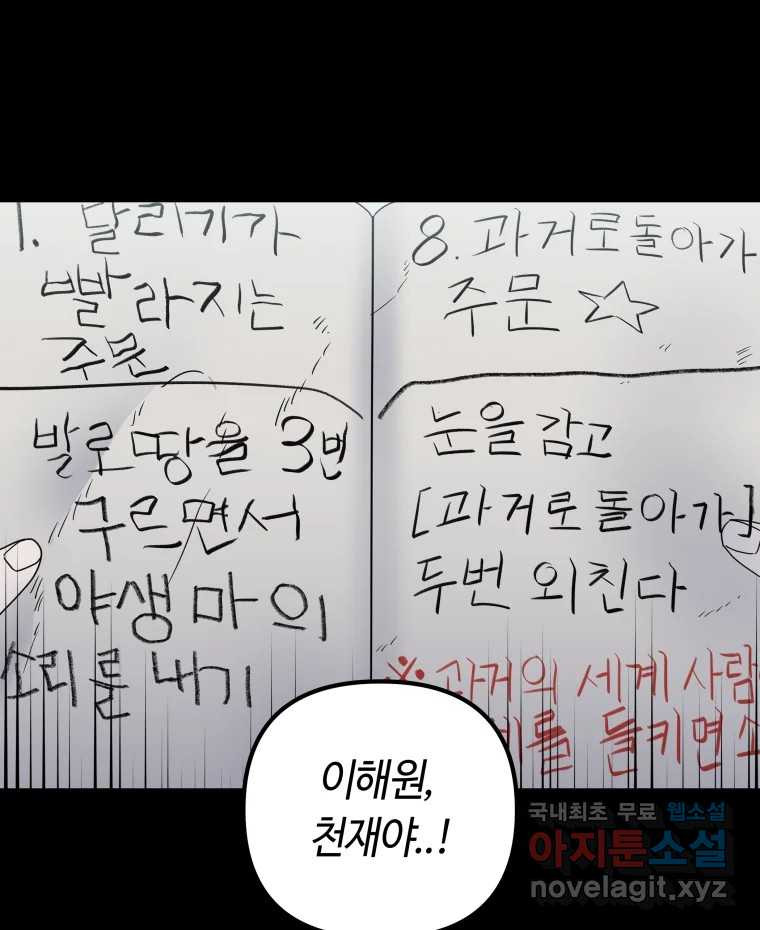 1. 달리기가
빨라지는
주문
발로 땅을 3번
구르면서
야생마의
소리를 내기
8. 과거로돌아가
주문 ☆
눈을 감고
[과거로 돌아가]
두번 외친다
※ 과거의 세계 사람
를 들키면
이해원,
천재야..!
국내최초 무료 웹소설
아지툰소설
novelagit.xyz